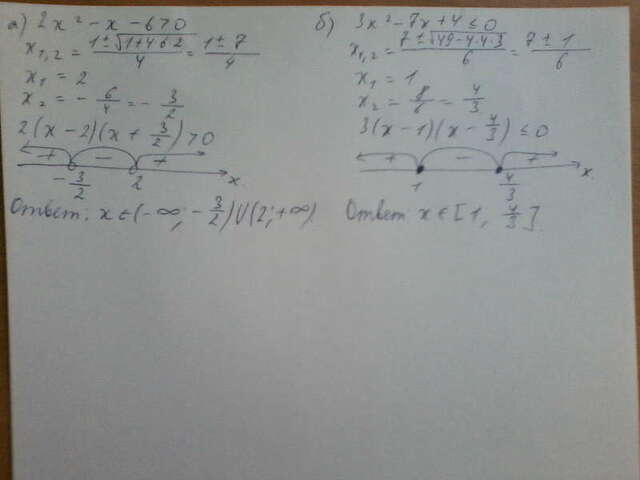 а) 2x² - x - 6 > 0
x₁,₂ = (1 ± √(1+4·6·2))/4 = (1 ± 7)/4
x₁ = 2
x₂ = - 6/4 = - 3/2
2(x - 2)(x + 3/2) > 0
+ - +
- 3/2 2 x
Ответ: x ∈ (-∞; - 3/2) U (2; +∞)
б) 3x² - 7x + 4 ≤ 0
x₁,₂ = (7 ± √(49 - 4·4·3))/6 = (7 ± 1)/6
x₁ = 1
x₂ = 8/6 = 4/3
3(x - 1)(x - 4/3) ≤ 0
+ - +
1 4/3 x
Ответ x ∈ [1, 4/3]